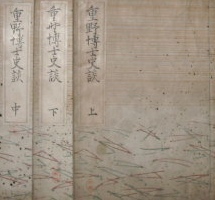 重野博士史談 上
重野博士史談 下
重野博士史談 中